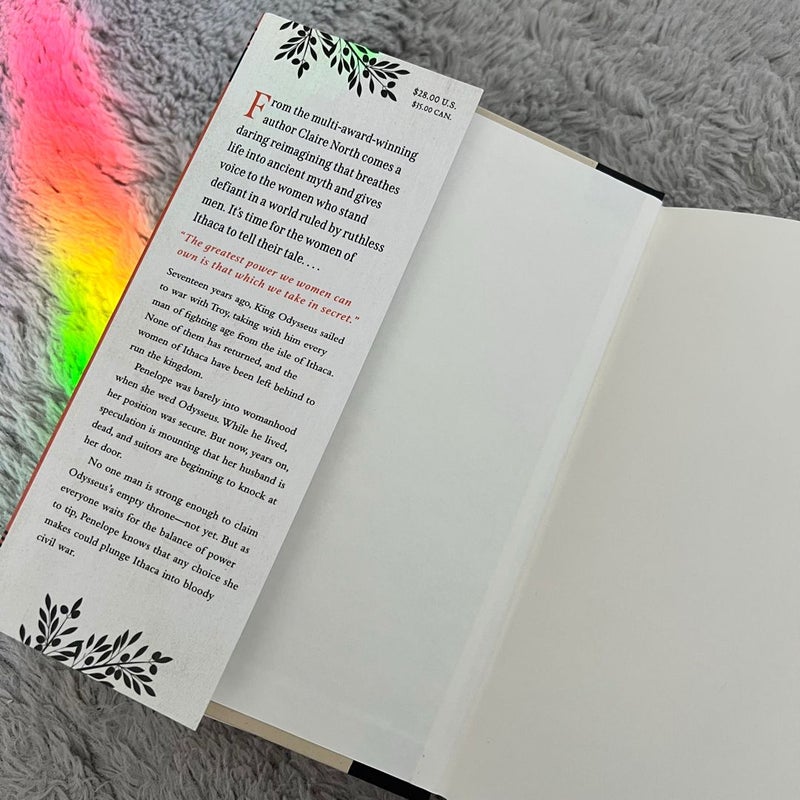 $28.00 U.S.
$35.00 CAN.
From the multi-award-winning
author Claire North comes a
daring reimagining that breathes
life into ancient myth and gives
voice to the women who stand
defiant in a world ruled by ruthless
men. It's time for the women of
Ithaca to tell their tale. . . .
"The greatest power we women can
own is that which we take in secret."
Seventeen years ago, King Odysseus sailed
to war with Troy, taking with him every
man of fighting age from the isle of Ithaca.
None of them has returned, and the
women of Ithaca have been left behind to
run the kingdom.
Penelope was barely into womanhood
when she wed Odysseus. While he lived,
her position was secure. But now, years on,
speculation is mounting that her husband is
dead, and suitors are beginning to knock at
her door.
No one man is strong enough to claim
Odysseus's empty throne—not yet. But as
everyone waits for the balance of power
to tip, Penelope knows that any choice she
makes could plunge Ithaca into bloody
civil war.